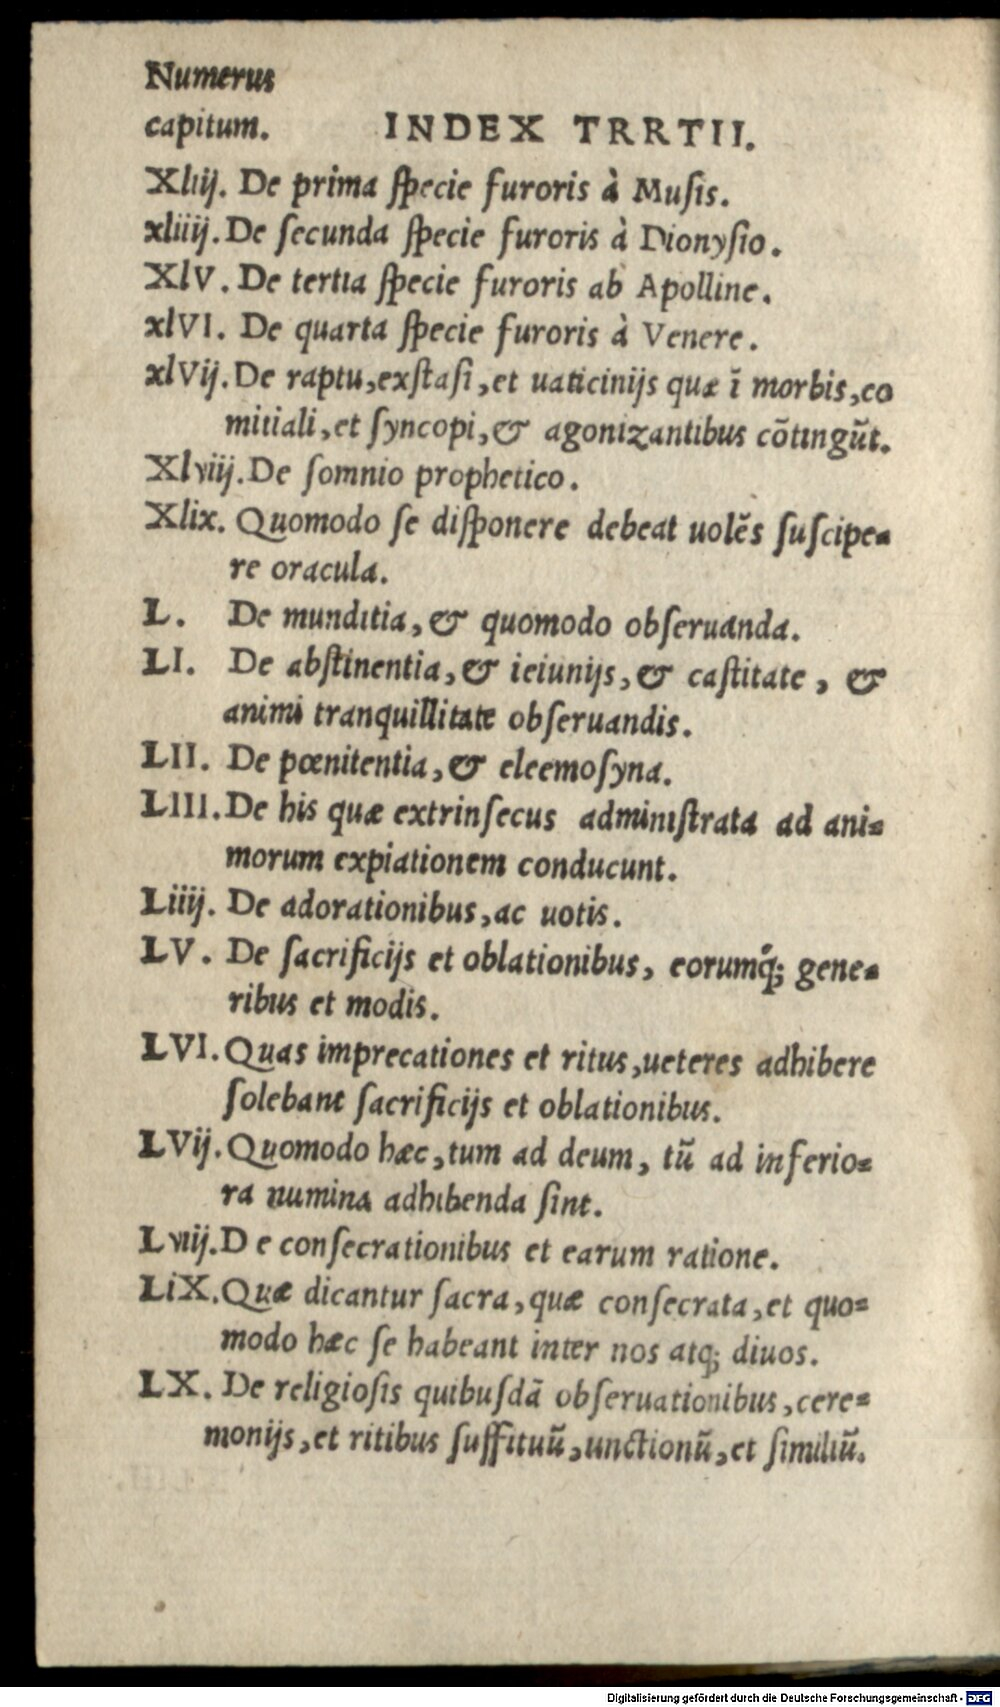 Numerus
capitum. INDEX TRRTII.
Xliij. De prima ſpecie furoris à Muſis.
xliiij. De ſecunda ſpecie furoris à Dionyſio.
XlV. De tertia ſpecie furoris ab Apolline.
xlVI. De quarta ſpecie furoris à Venere.
xlVij. De raptu, exſtaſi, et uaticinijs quæ ĩ morbis, co
mitiali, et ſyncopi, & agonizantibus cõtingũt.
Xlviij. De ſomnio prophetico.
Xlix. Quomodo ſe diſponere debeat uolẽs ſuſcipe=
re oracula.
L. De munditia, & quomodo obſeruanda.
LI. De abſtinentia, & ieiunijs, & caſtitate, &
animi tranquillitate obſeruandis.
LII. De pœnitentia, & eleemoſyna.
LIII. De his quæ extrinſecus adminiſtrata ad ani=
morum expiationem conducunt.
Liiij. De adorationibus, ac uotis.
LV. De ſacrificijs et oblationibus, eorumq́; gene=
ribus et modis.
LVI. Quas imprecationes et ritus, ueteres adhibere
ſolebant ſacrificijs et oblationibus.
LVij. Quomodo hæc, tum ad deum, tũ ad inferio=
ra numina adhibenda ſint.
Lviij. D e conſecrationibus et earum ratione.
LiX. Quæ dicantur ſacra, quæ conſecrata, et quo=
modo hæc ſe habeant inter nos atq; diuos.
LX. De religioſis quibuſdã obſeruationibus, cere=
monijs, et ritibus ſuffituũ, unctionũ, et ſimiliũ.
Digitalisierung gefördert durch die Deutsche Forschungsgemeinschaft - DFG